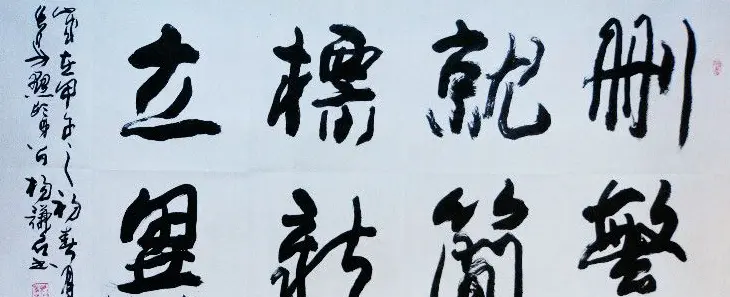 删繁
就简
标新
立异
岁在甲午之初春月
杨谦